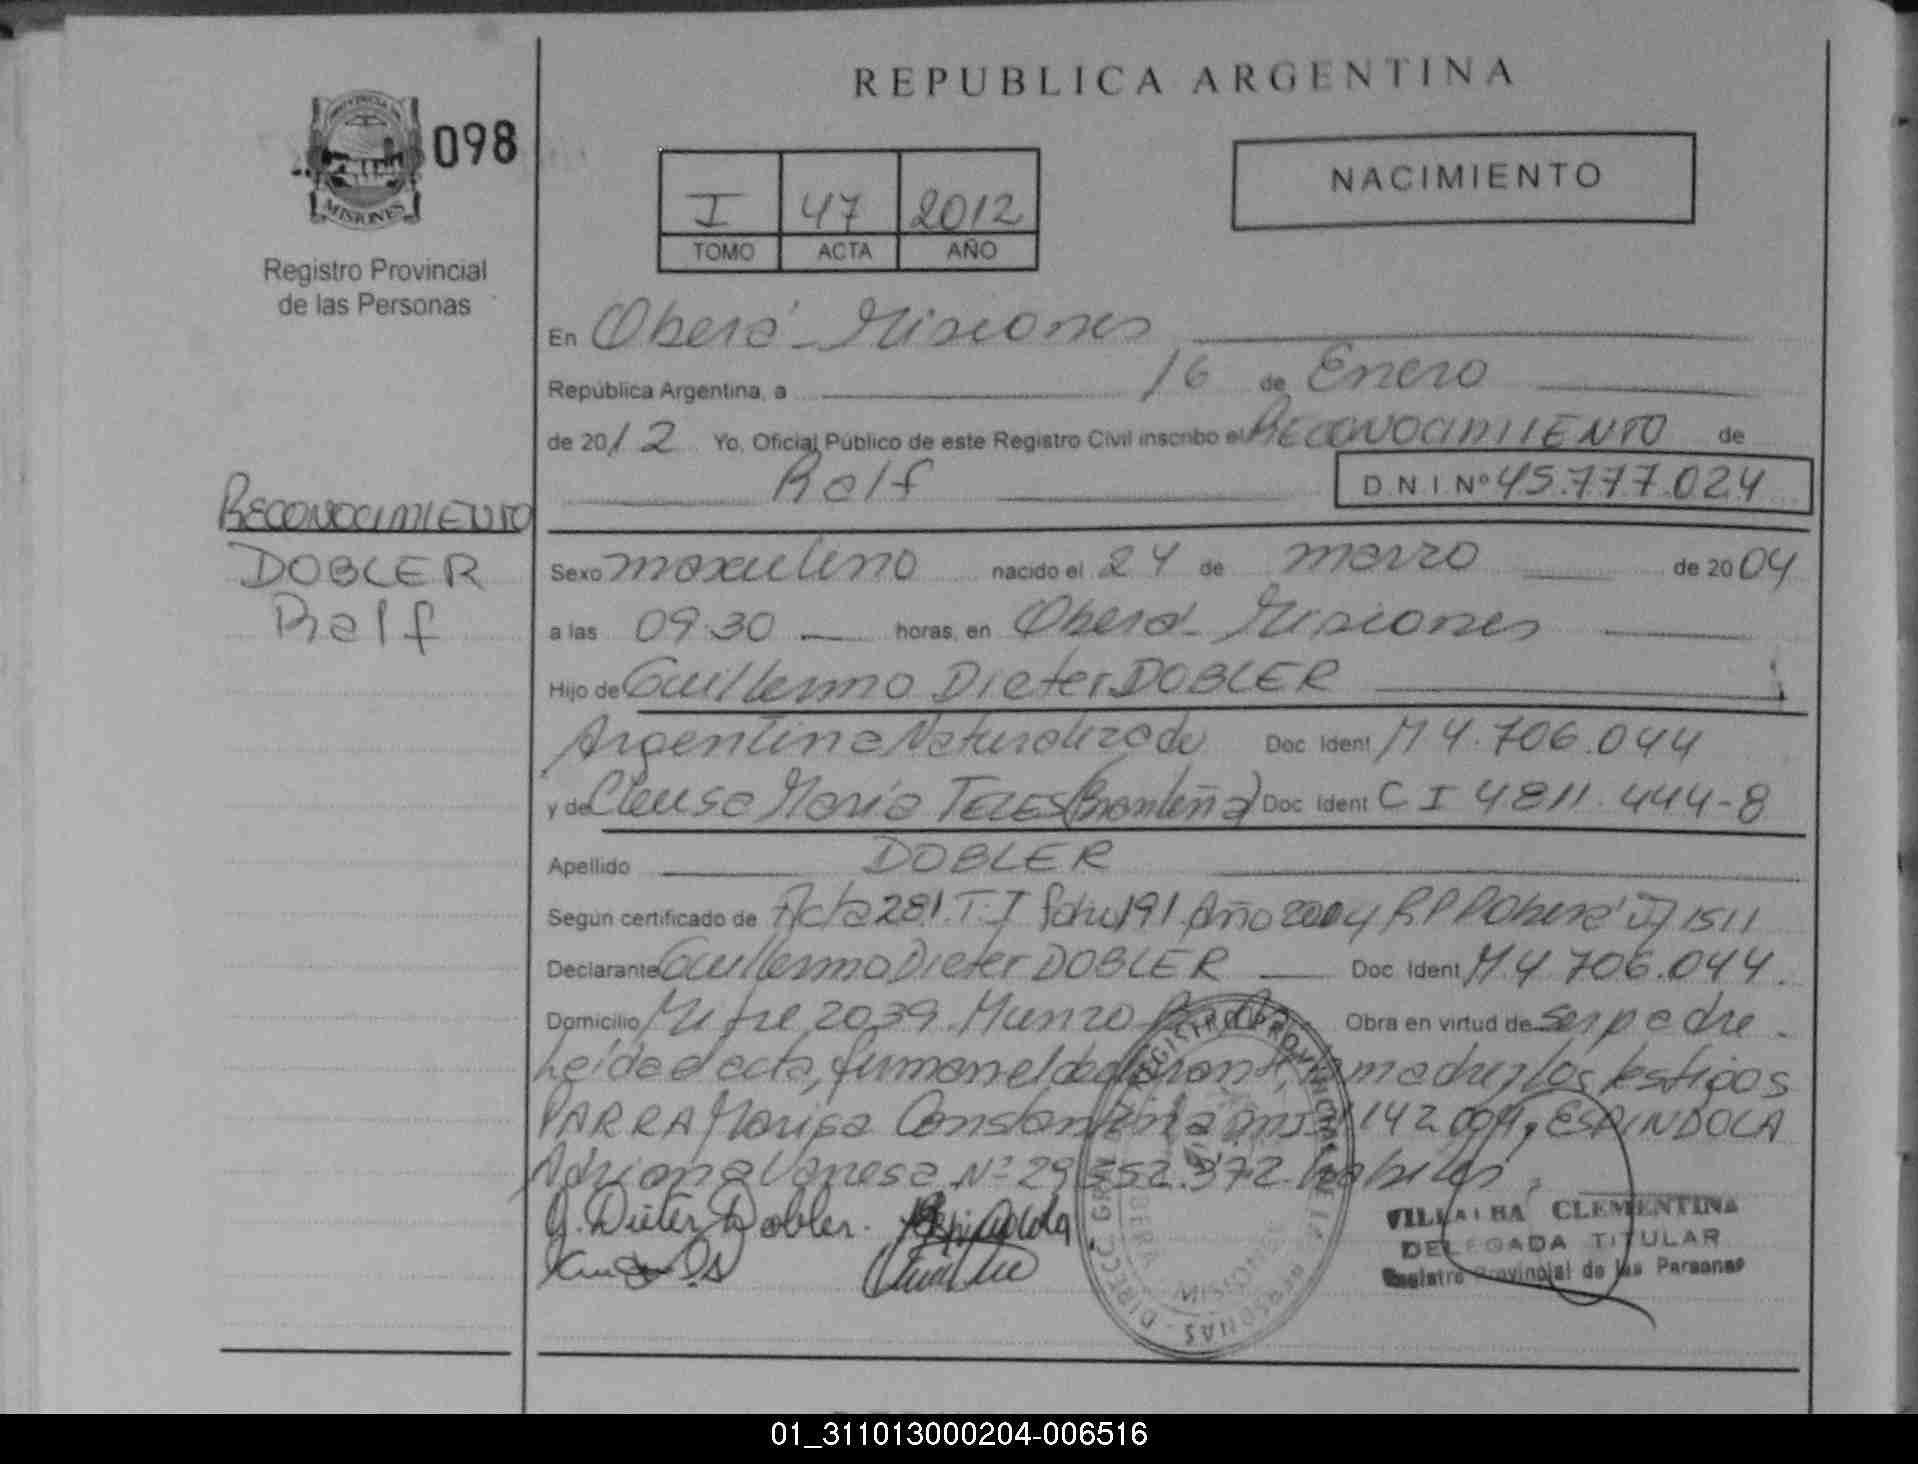 REPUBLICA ARGENTINA
PROVINCIA DE
MISIONES
098
Registro Provincial
de las Personas
I 47 2012
TOMO ACTA AÑO
NACIMIENTO
En Oberá - Misiones
República Argentina, a 16 de Enero
de 2012 Yo, Oficial Público de este Registro Civil inscribo el RECONOCIMIENTO de
Ralf D.N.I.Nº 45.777.024
RECONOCIMIENTO
DOBLER
Ralf
Sexo masculino nacido el 24 de marzo de 2004
a las 09.30 horas, en Oberá - Misiones
Hijo de Guillermo Dieter DOBLER
Argentino Naturalizado Doc Ident M 4.706.044
y de Cleusa María TELES (Brasileña) Doc Ident C I 4811.444-8
Apellido DOBLER
Según certificado de Acta 281. T. I folio 191. Año 2004 RPP Oberá 1511
Declarante Guillermo Dieter DOBLER Doc Ident M.4 706.044.
Domicilio Mitre 2039. Munro Bs. Obra en virtud de ser padre.
Leída el acta, firman el declarante, la madre y los testigos
PARRA Marisa Constantina 142.004, ESPINDOLA
Adriana Vanesa Nº 29.352.372. habiles.
G. Dieter Dobler. Espindola
REGISTRO PROVINCIAL DE LAS PERSONAS - DIRECC. GRAL
OBERA MISIONES
VILLALBA CLEMENTINA
DELEGADA TITULAR
Registro Provincial de las Personas
01_311013000204-006516